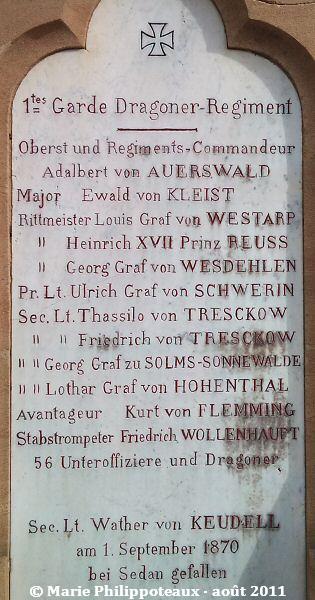 1tes Garde Dragoner-Regiment
Oberst und Regiments-Commandeur
Adalbert von AUERSWALD
Major Ewald von KLEIST
Rittmeister Louis Graf von WESTARP
" Heinrich XVII Prinz REUSS
" Georg Graf von WESDEHLEN
Pr. Lt. Ulrich Graf von SCHWERIN
Sec. Lt. Thassilo von TRESCKOW
" " Friedrich von TRESCKOW
" " Georg Graf zu SOLMS-SONNEWALDE
" " Lothar Graf von HOHENTHAL
Avantageur Kurt von FLEMMING
Stabstrompeter Friedrich WOLLENHAUPT
56 Unteroffiziere und Dragoner
Sec. Lt. Wather von KEUDELL
am 1. September 1870
bei Sedan gefallen
© Marie Philippoteaux - août 2011